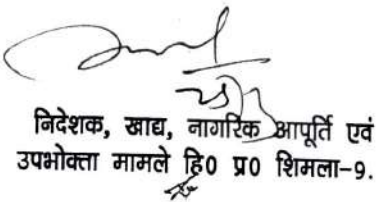 निदेशक, खाद्य, नागरिक आपूर्ति एवं
उपभोक्ता मामले हि0 प्र0 शिमला-9.